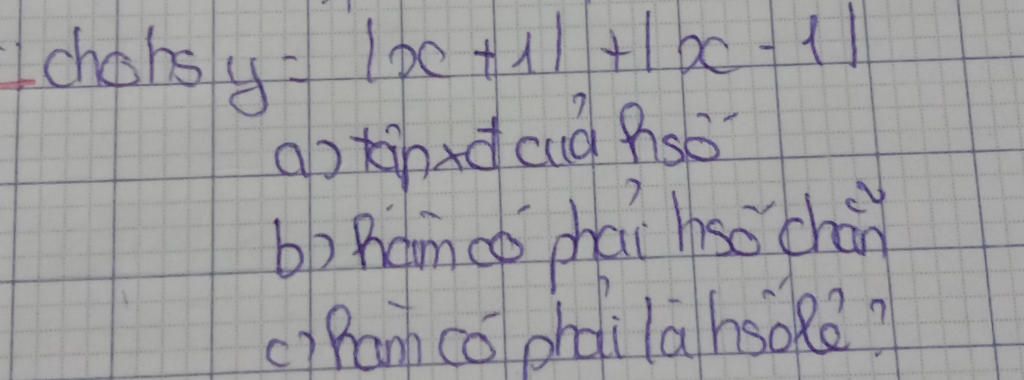 cho hs y = |x + 1| + |x - 1|
a) tập xđ của hsố
b) hàm có phải hsố chẵn
c) hàm có phải là hsố lẻ?